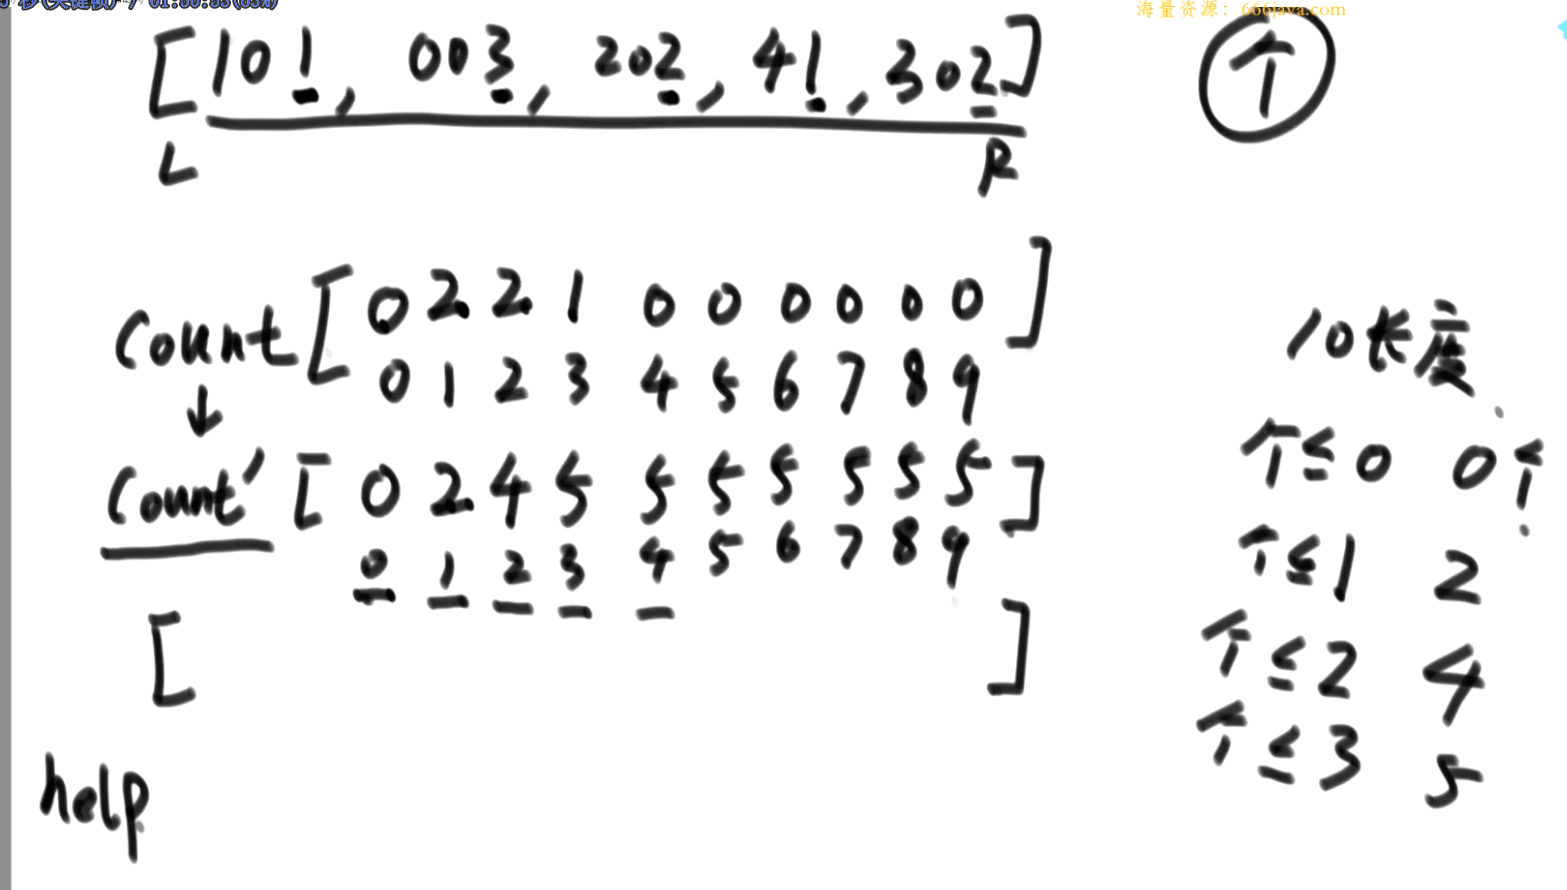 海量资源：666java.com
[101, 003, 202, 41, 302]
个
L R
Count [0 2 2 1 0 0 0 0 0 0]
0 1 2 3 4 5 6 7 8 9
↓
Count' [0 2 4 5 5 5 5 5 5 5]
0 1 2 3 4 5 6 7 8 9
[ ]
help
10长度
个≤0 0个
个≤1 2
个≤2 4
个≤3 5